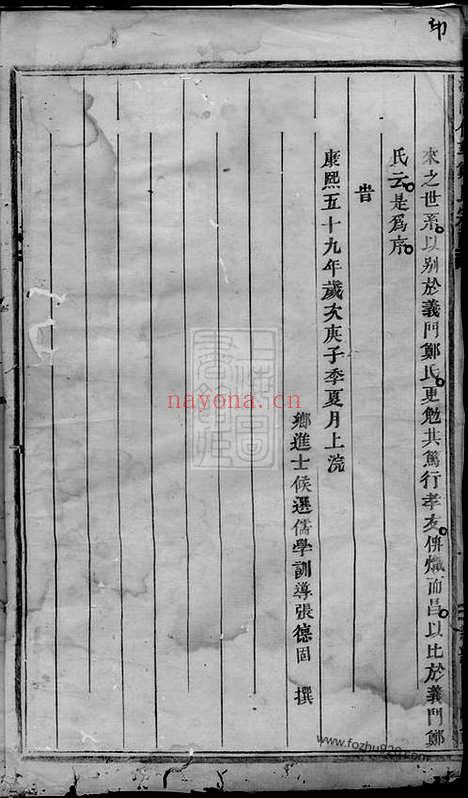 印
來之世系以别於義門鄭氏更勉其篤行孝友俾熾而昌以比於義門鄭
氏云是爲序
旹
康熙五十九年歲次庚子季夏月上浣
鄉進士候選儒學訓導張德固 撰
nayona.cn
www.fozhu920.com